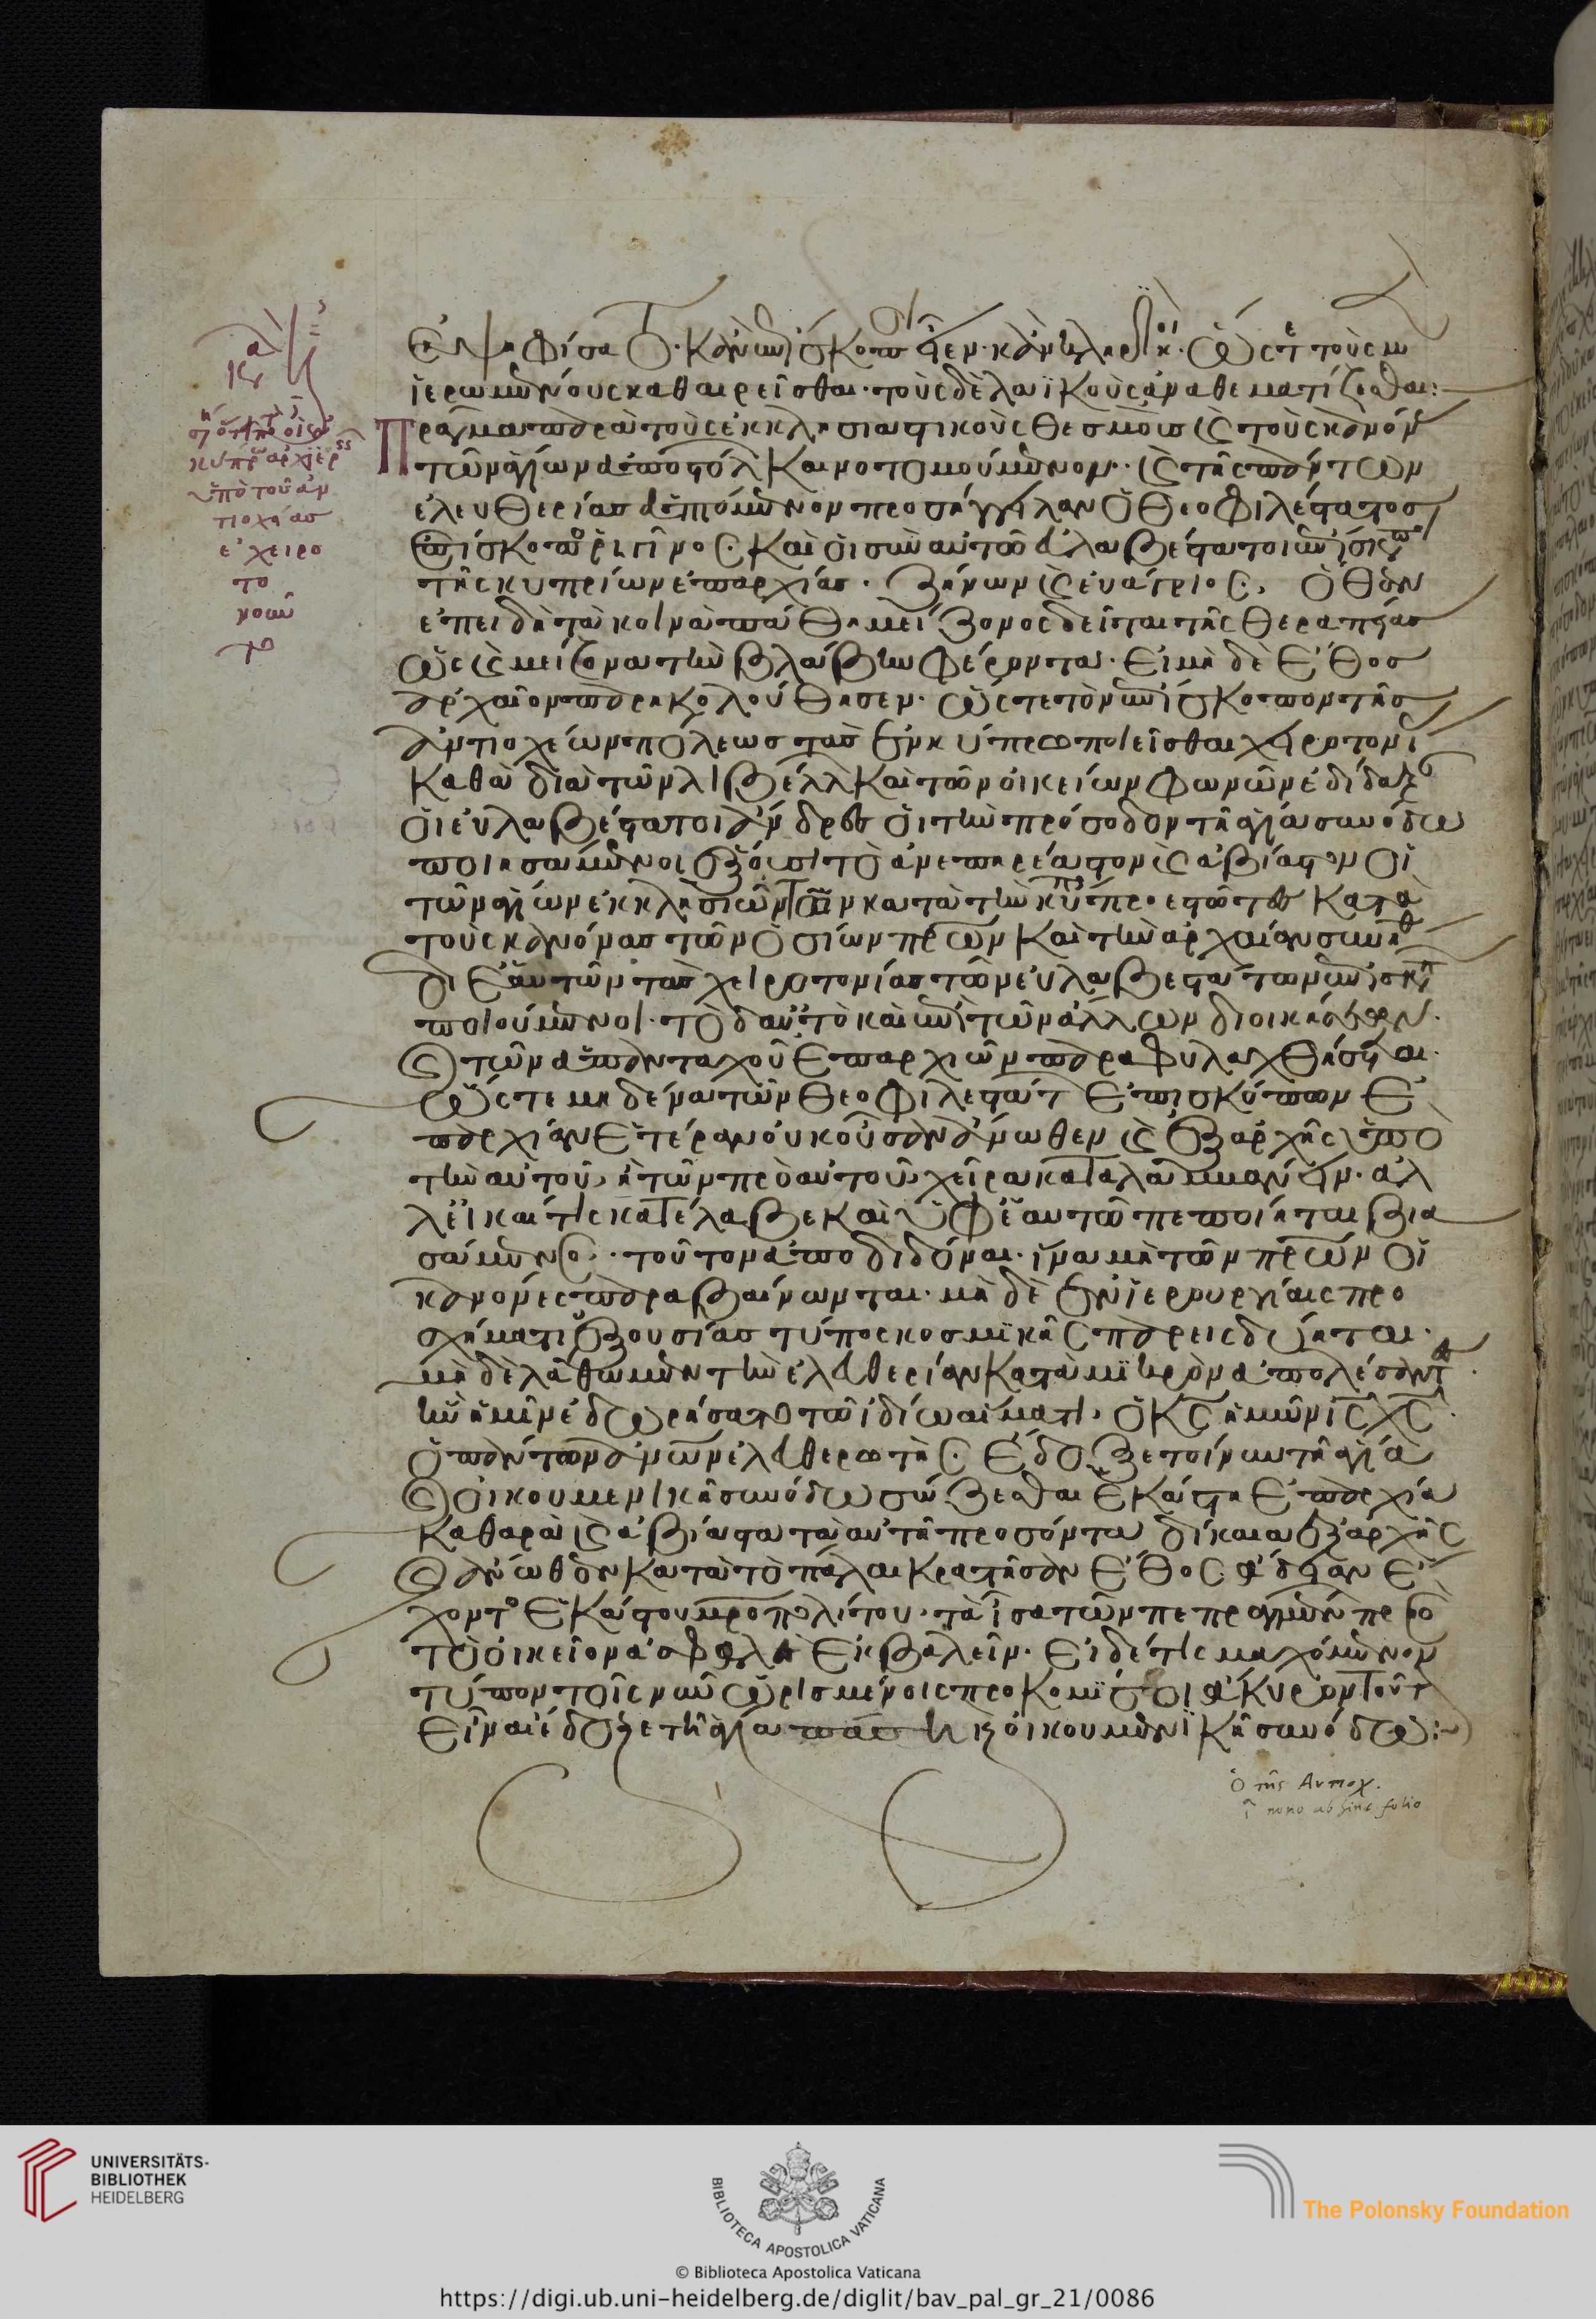 ἐψηφίσατο. κἂν ἐπίσκοπος εἶεν. κἂν κληρικοί. ὥστε τοὺς μ
ἱερωμένους καθαιρεῖσθαι. τοὺς δὲ λαϊκοὺς ἀναθεματίζεσθαι:
Πρᾶγμα παρὰ τοὺς ἐκκλησιαστικοὺς θεσμοὺς καὶ τοὺς κανόν
τῶν ἁγίων ἀποστόλ καινοτομούμενον. καὶ τῆς πάντων
ἐλευθερίας ἁπτόμενον προσήγγειλεν ὁ θεοφιλέστατος
ἐπίσκοπος ῥιγῖνος. καὶ οἱ σὺν αὐτῶ εὐλαβέστατοι ἐπίσκοπ
τῆς κυπρίων ἐπαρχίας. ζήνων καὶ εὐάγριος. ὅθεν
ἐπειδὴ τὰ κοινὰ πάθη μείζονος δεῖται τῆς θεραπείας
ὡς καὶ μείζονα τὴν βλάβην φέροντα. εἰ μὴ δὲ ἔθος
ἀρχαῖον παρηκολούθησεν. ὥστε τὸν ἐπίσκοπον τῆς
ἀντιοχέων πόλεως τὰς ἐν κύπρω ποιεῖσθαι χειροτονί
καθὰ διὰ τῶν λιβέλλ καὶ τῶν οἰκείων φωνῶν ἐδίδαξ
οἱ εὐλαβέστατοι ἄνδρες οἱ τὴν πρόσοδον τῆ ἁγία συνόδω
ποιησάμενοι ἕξουσι τὸ ἀνεπηρέαστον καὶ ἀβίαστον οἱ
τῶν ἁγίων ἐκκλησιῶν τῶν κατὰ τὴν κύπρον προεστῶτες κατὰ
τοὺς κανόνας τῶν ὁσίων πρῶν καὶ τὴν ἀρχαίαν συνήθ
δι ἑαυτῶν τὰς χειροτονίας τῶν εὐλαβεστάτων ἐπισκ
ποιούμενοι. τὸ δ αὐτὸ καὶ ἐπὶ τῶν ἄλλων διοικήσεων.
καὶ τῶν ἁπανταχοῦ ἐπαρχιῶν παραφυλαχθήσεται.
ὥστε μηδένα τῶν θεοφιλεστάτ ἐπισκόπων ἐ
παρχίαν ἑτέραν οὐκ οὖσαν ἄνωθεν καὶ ἐξαρχῆς ὑπὸ
τὴν αὐτοῦ, ἢ τῶν πρὸ αὐτοῦ χεῖρα καταλαμμάνειν. ἀλ
λ εἴ καί τις κατέλαβε καὶ ὑφ ἑαυτῶ πεποίηται βια
σάμενος. τοῦτον ἀποδιδόναι. ἵνα μὴ τῶν πρῶν οἱ
κανόνες παραβαίνωνται. μὴ δὲ ἐν ἱερουργίαις προ
σχήματι ἐξουσίας τύπος κοσμικῆς παρεισδύηται.
μὴ δὲ λάθωμεν τὴν ἐλευθερίαν κατὰ μικρὸν ἀπολέσαντ
ἣν ἡμῖν ἐδωρήσατο τῶ ἰδίω αἵματι, ὁ κς ἡμῶν ις χς
ὁ πάντων ἀνων ἐλευθερωτής. ἔδοξε τοίνυν τῆ ἁγία
καὶ οἰκουμενικῆ συνόδω σώζεσθαι ἑκάστη ἐπαρχία
καθαρὰ καὶ ἀβίαστα τὰ αὐτῆ προσόντα δίκαια ἐξαρχῆς
καὶ ἄνωθεν κατὰ τὸ πάλαι κρατῆσαν ἔθος. ἄδειαν ἔ
χοντος ἑκάστου μροπολίτου. τὰ ἴσα τῶν πεπραγμέν πρὸ
τὸ οἰκεῖον ἀσφαλὲς ἐκβαλεῖν. εἰ δέ τις μαχόμενον
τύπον τοῖς νῦν ὡρισμένοις προκομίσοι ἄκυρον τοῦτ
εἶναι ἔδοξε τῆ ἁγία πάση καὶ οἰκουμενικῆ συνόδω:
ὁ τῆς Αντιοχ.
nono ab hinc folio
UNIVERSITÄTS-
BIBLIOTHEK
HEIDELBERG
BIBLIOTECA APOSTOLICA VATICANA
The Polonsky Foundation
© Biblioteca Apostolica Vaticana
https://digi.ub.uni-heidelberg.de/diglit/bav_pal_gr_21/0086